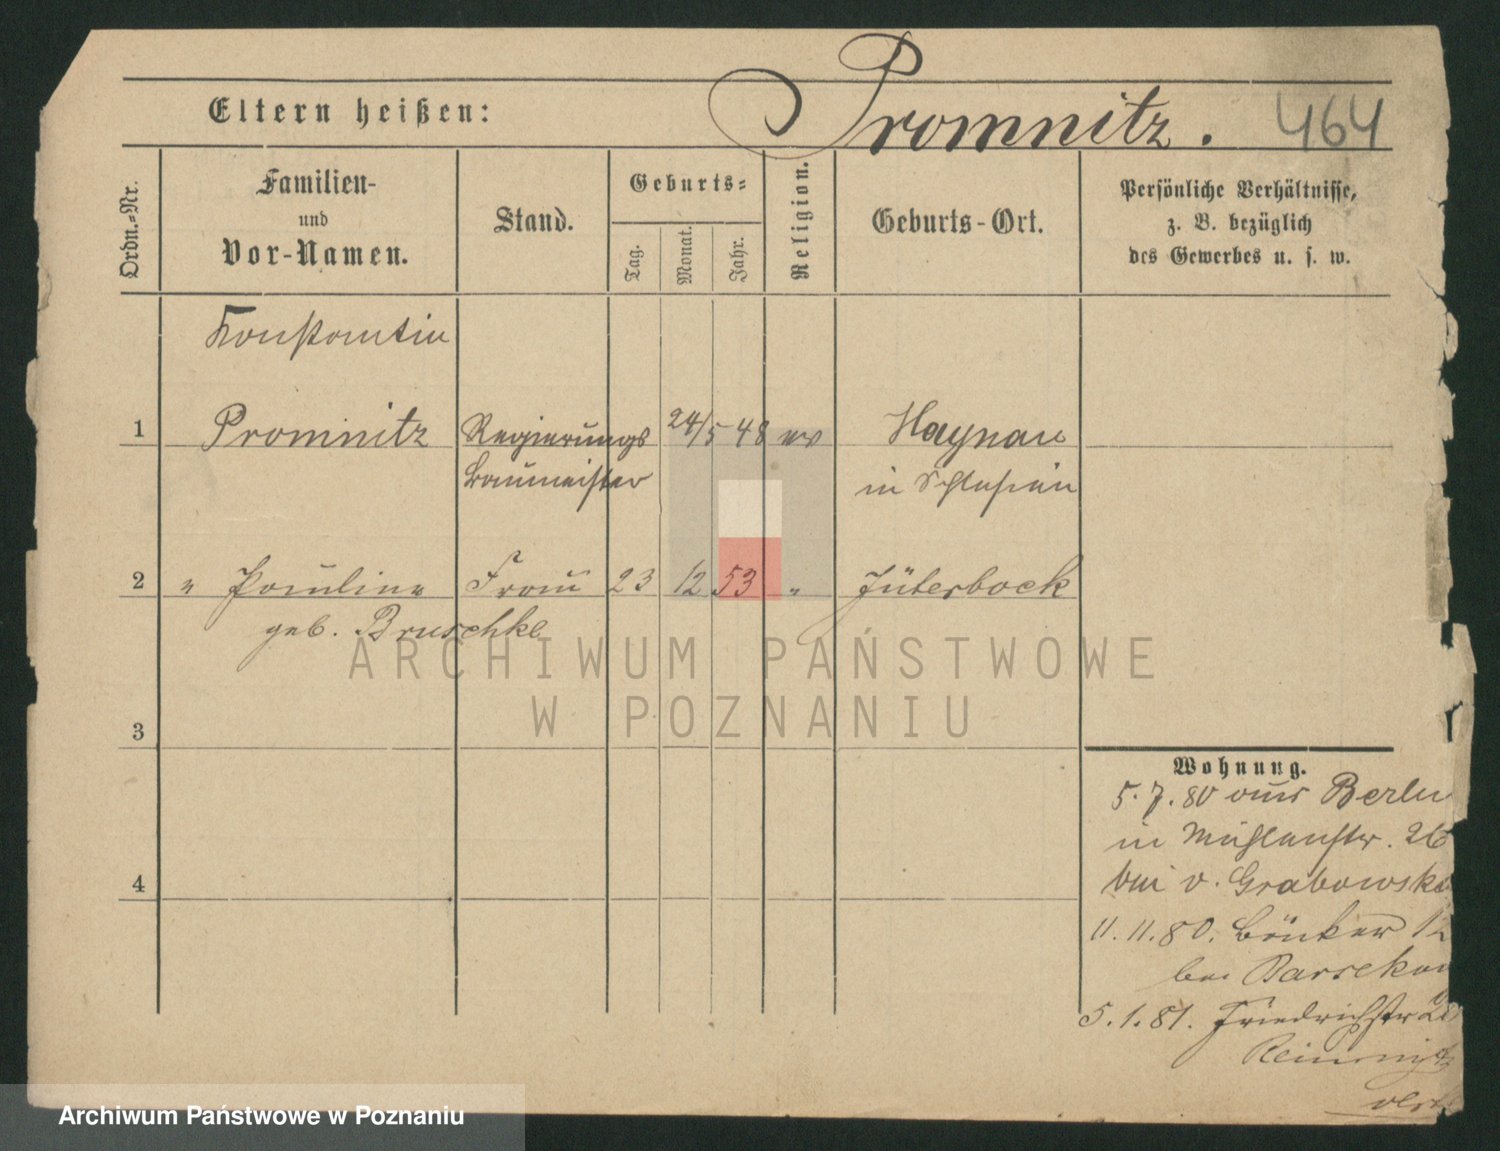 Eltern heißen: Promnitz. 464
Ordn.=Nr.
Familien-
und
Vor-Namen.
Stand.
Geburts=
Tag.
Monat.
Jahr.
Religion.
Geburts-Ort.
Persönliche Verhältnisse,
z. B. bezüglich
des Gewerbes u. s. w.
Konstantin
1 Promnitz Regierungs 24/5 48 ev Haynau
baumeister in Schlesien
2 " Pauline Frau 23 12 53 " Jüterbock
geb. Bruschke
3
4
Wohnung.
5.7.80 aus Berlin
in Mühlenstr. 26
bei v. Grabowska
11.11.80. Bäcker 12
bei
5.1.81. Friedrichstr
ARCHIWUM PAŃSTWOWE
W POZNANIU
Archiwum Państwowe w Poznaniu